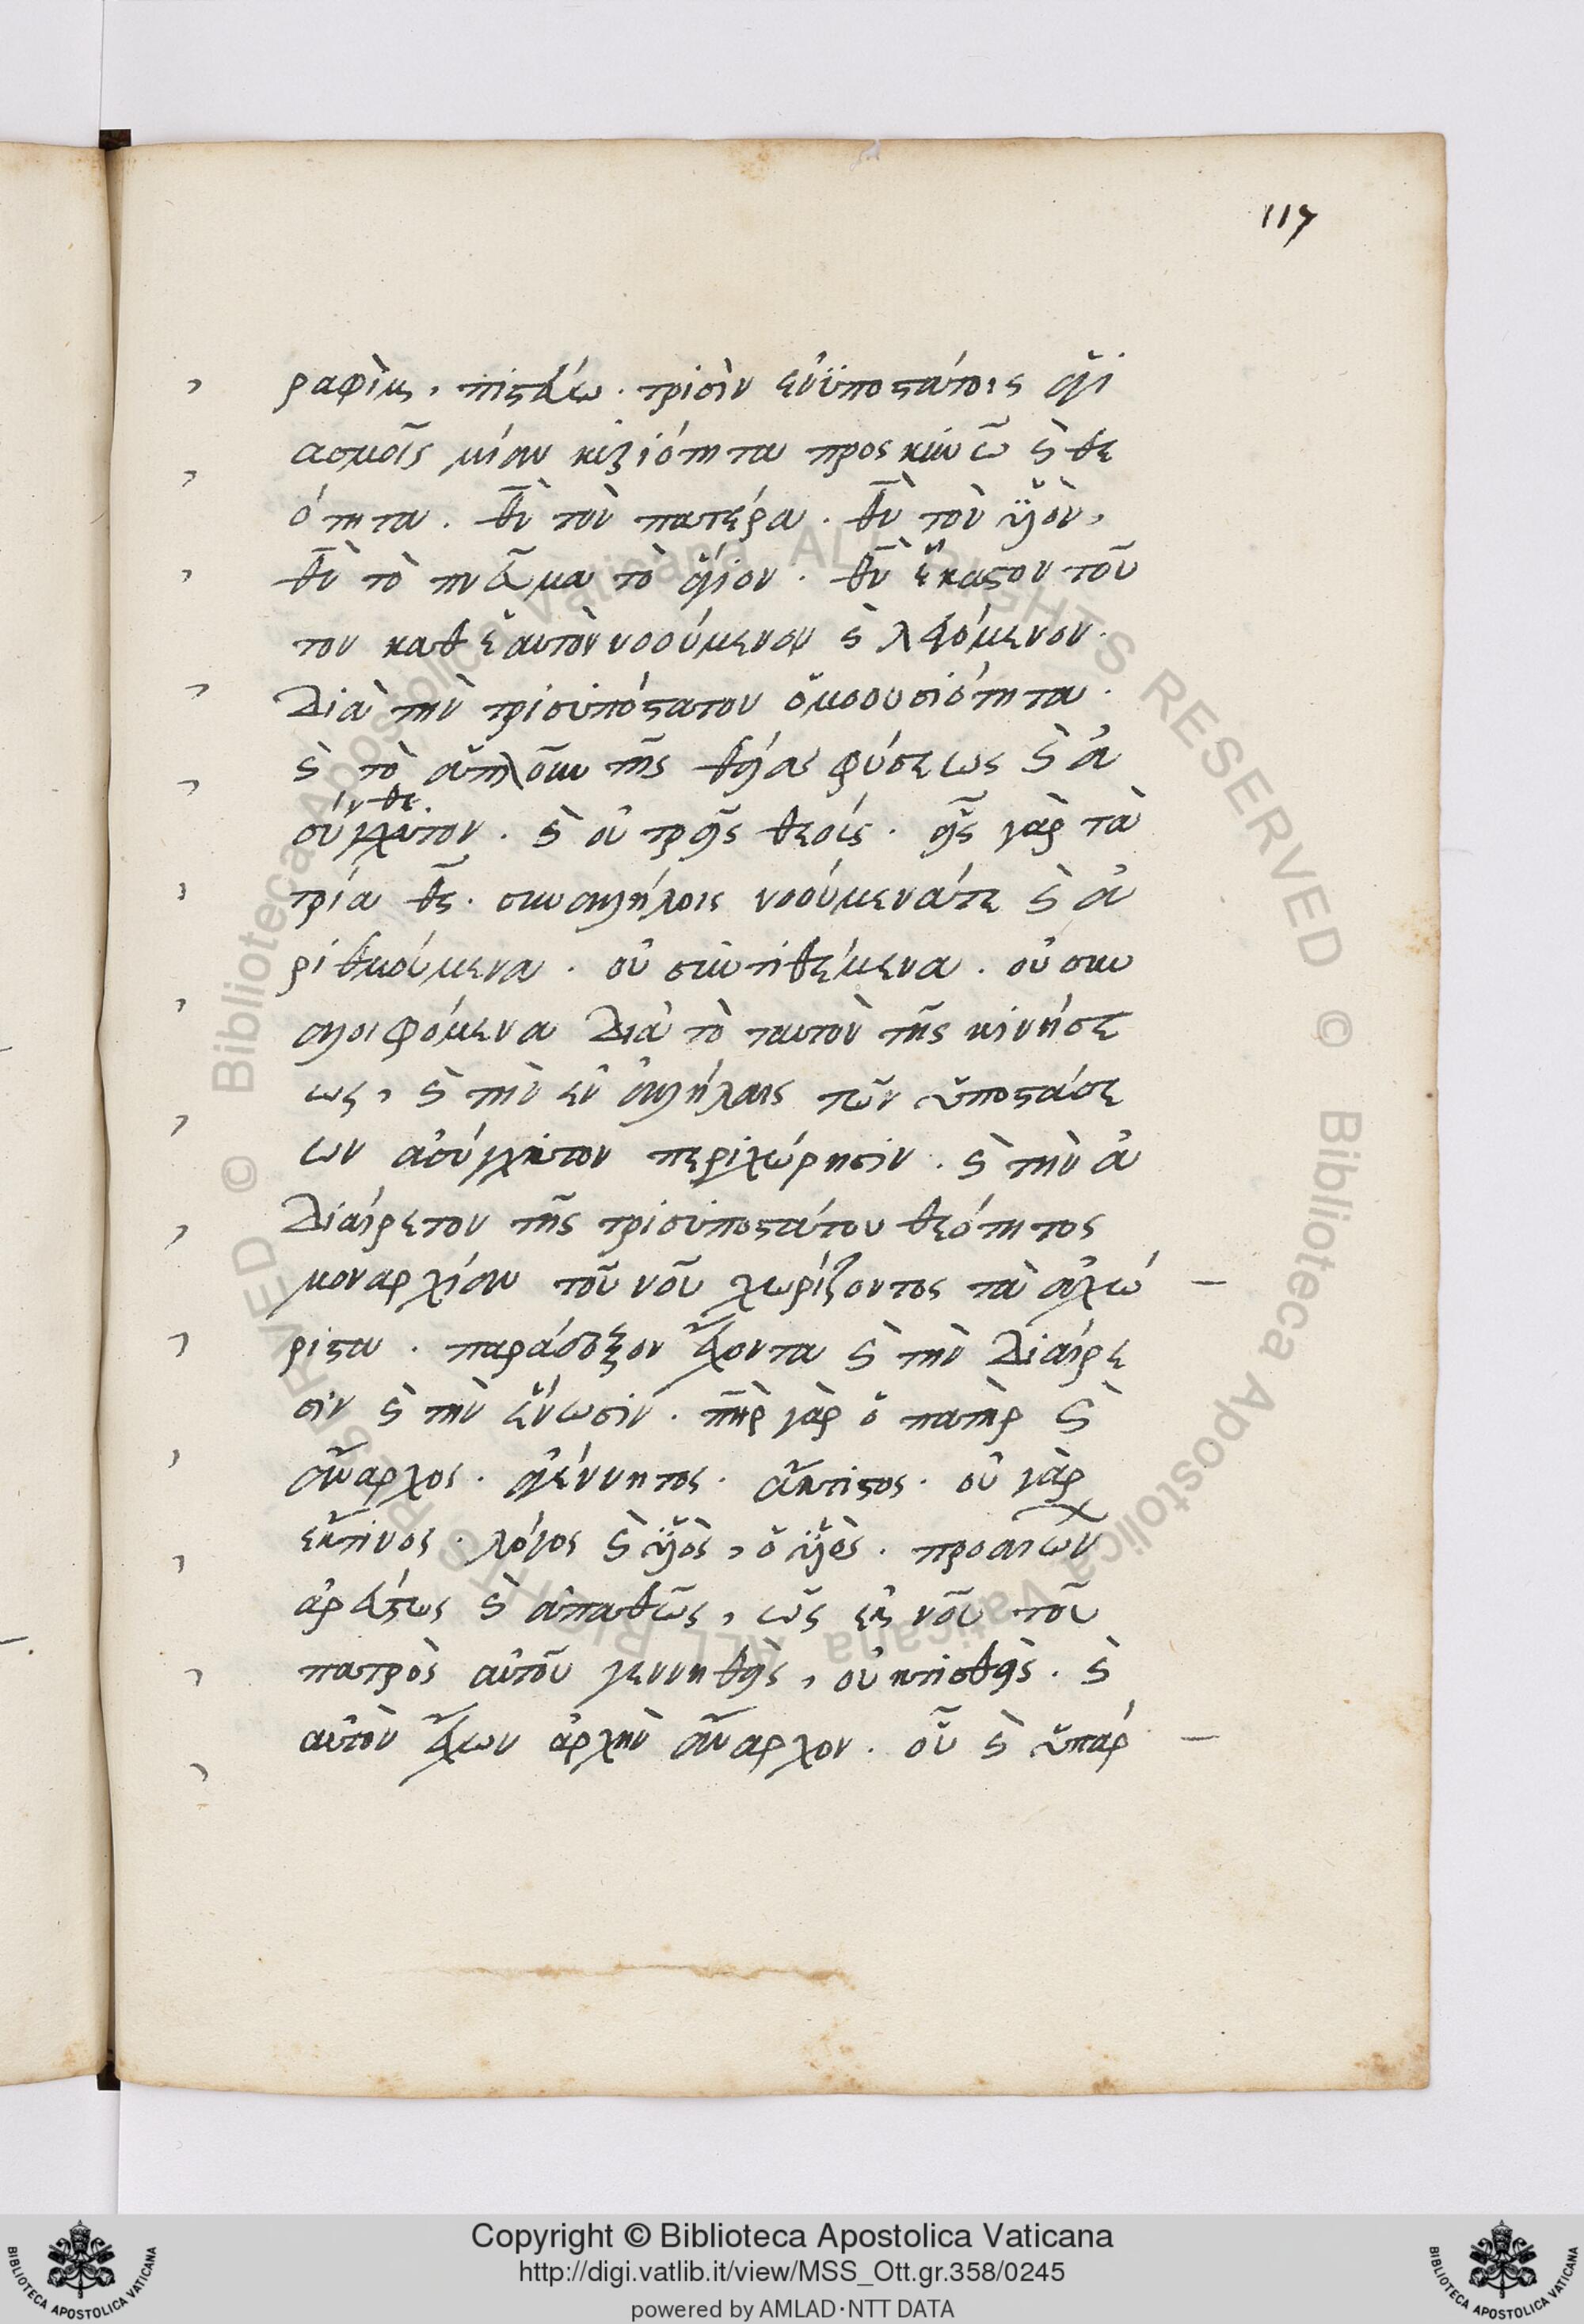 117
ραφὶμ, πιστεύω. τρισὶν ἐνϋποστάτοις ἁγι
ασμοῖς μίαν κυριότητα προσκυνῶ καὶ θε
ότητα. θν̄ τὸν πατέρα. θν̄ τὸν υἱὸν,
θν̄ τὸ πνεῦμα τὸ ἅγιον. θν̄ ἕκαστον τοῦ
τον καθ ἑαυτὸν νοούμενον καὶ λεγόμενον.
διὰ τὴν τρισυπόστατον ὁμοουσιότητα.
καὶ τὸ ἁπλοῦν τῆς θείας φύσεως καὶ ἀ
νθε.
σύγχυτον. καὶ οὐ τρεῖς θεοὶς. εἷς γὰρ τὰ
τρία θς̄. συναλλήλοις νοούμενά τε καὶ ἀ
ριθμούμενα. οὐ συντιθέμενα. οὐ συν
αλοιφόμενα διὰ τὸ ταυτὸν τῆς κινήσε
ως, καὶ τὴν ἐν ἀλλήλαις τῶν ὑποστάσε
ων ἀσύγχυτον περιχώρησιν. καὶ τὴν ἀ
διαίρετον τῆς τρισυποστάτου θεότητος
μοναρχίαν τοῦ νοῦ χωρίζοντος τὰ ἀχώ
ριστα. παράδοξον ἔχοντα καὶ τὴν διαίρε
σιν καὶ τὴν ἕνωσιν. πη̄ρ γὰρ ὁ πατὴρ καὶ
ἄναρχος. ἀγέννητος. ἄκτιστος. οὐ γὰρ
ἔκτινος. λόγος καὶ υἱὸς, ὁ υἱὸς. προαιώνων
ἀρεύστως καὶ ἀπαθῶς, ὡς ἐκ νοῦ τοῦ
πατρὸς αὐτοῦ γεννηθεὶς, οὐ κτισθεὶς. καὶ
αὐτὸν ἔχων ἀρχὴν ἄναρχον. οὗ καὶ ὑπάρ
Copyright © Biblioteca Apostolica Vaticana
http://digi.vatlib.it/view/MSS_Ott.gr.358/0245
powered by AMLAD·NTT DATA